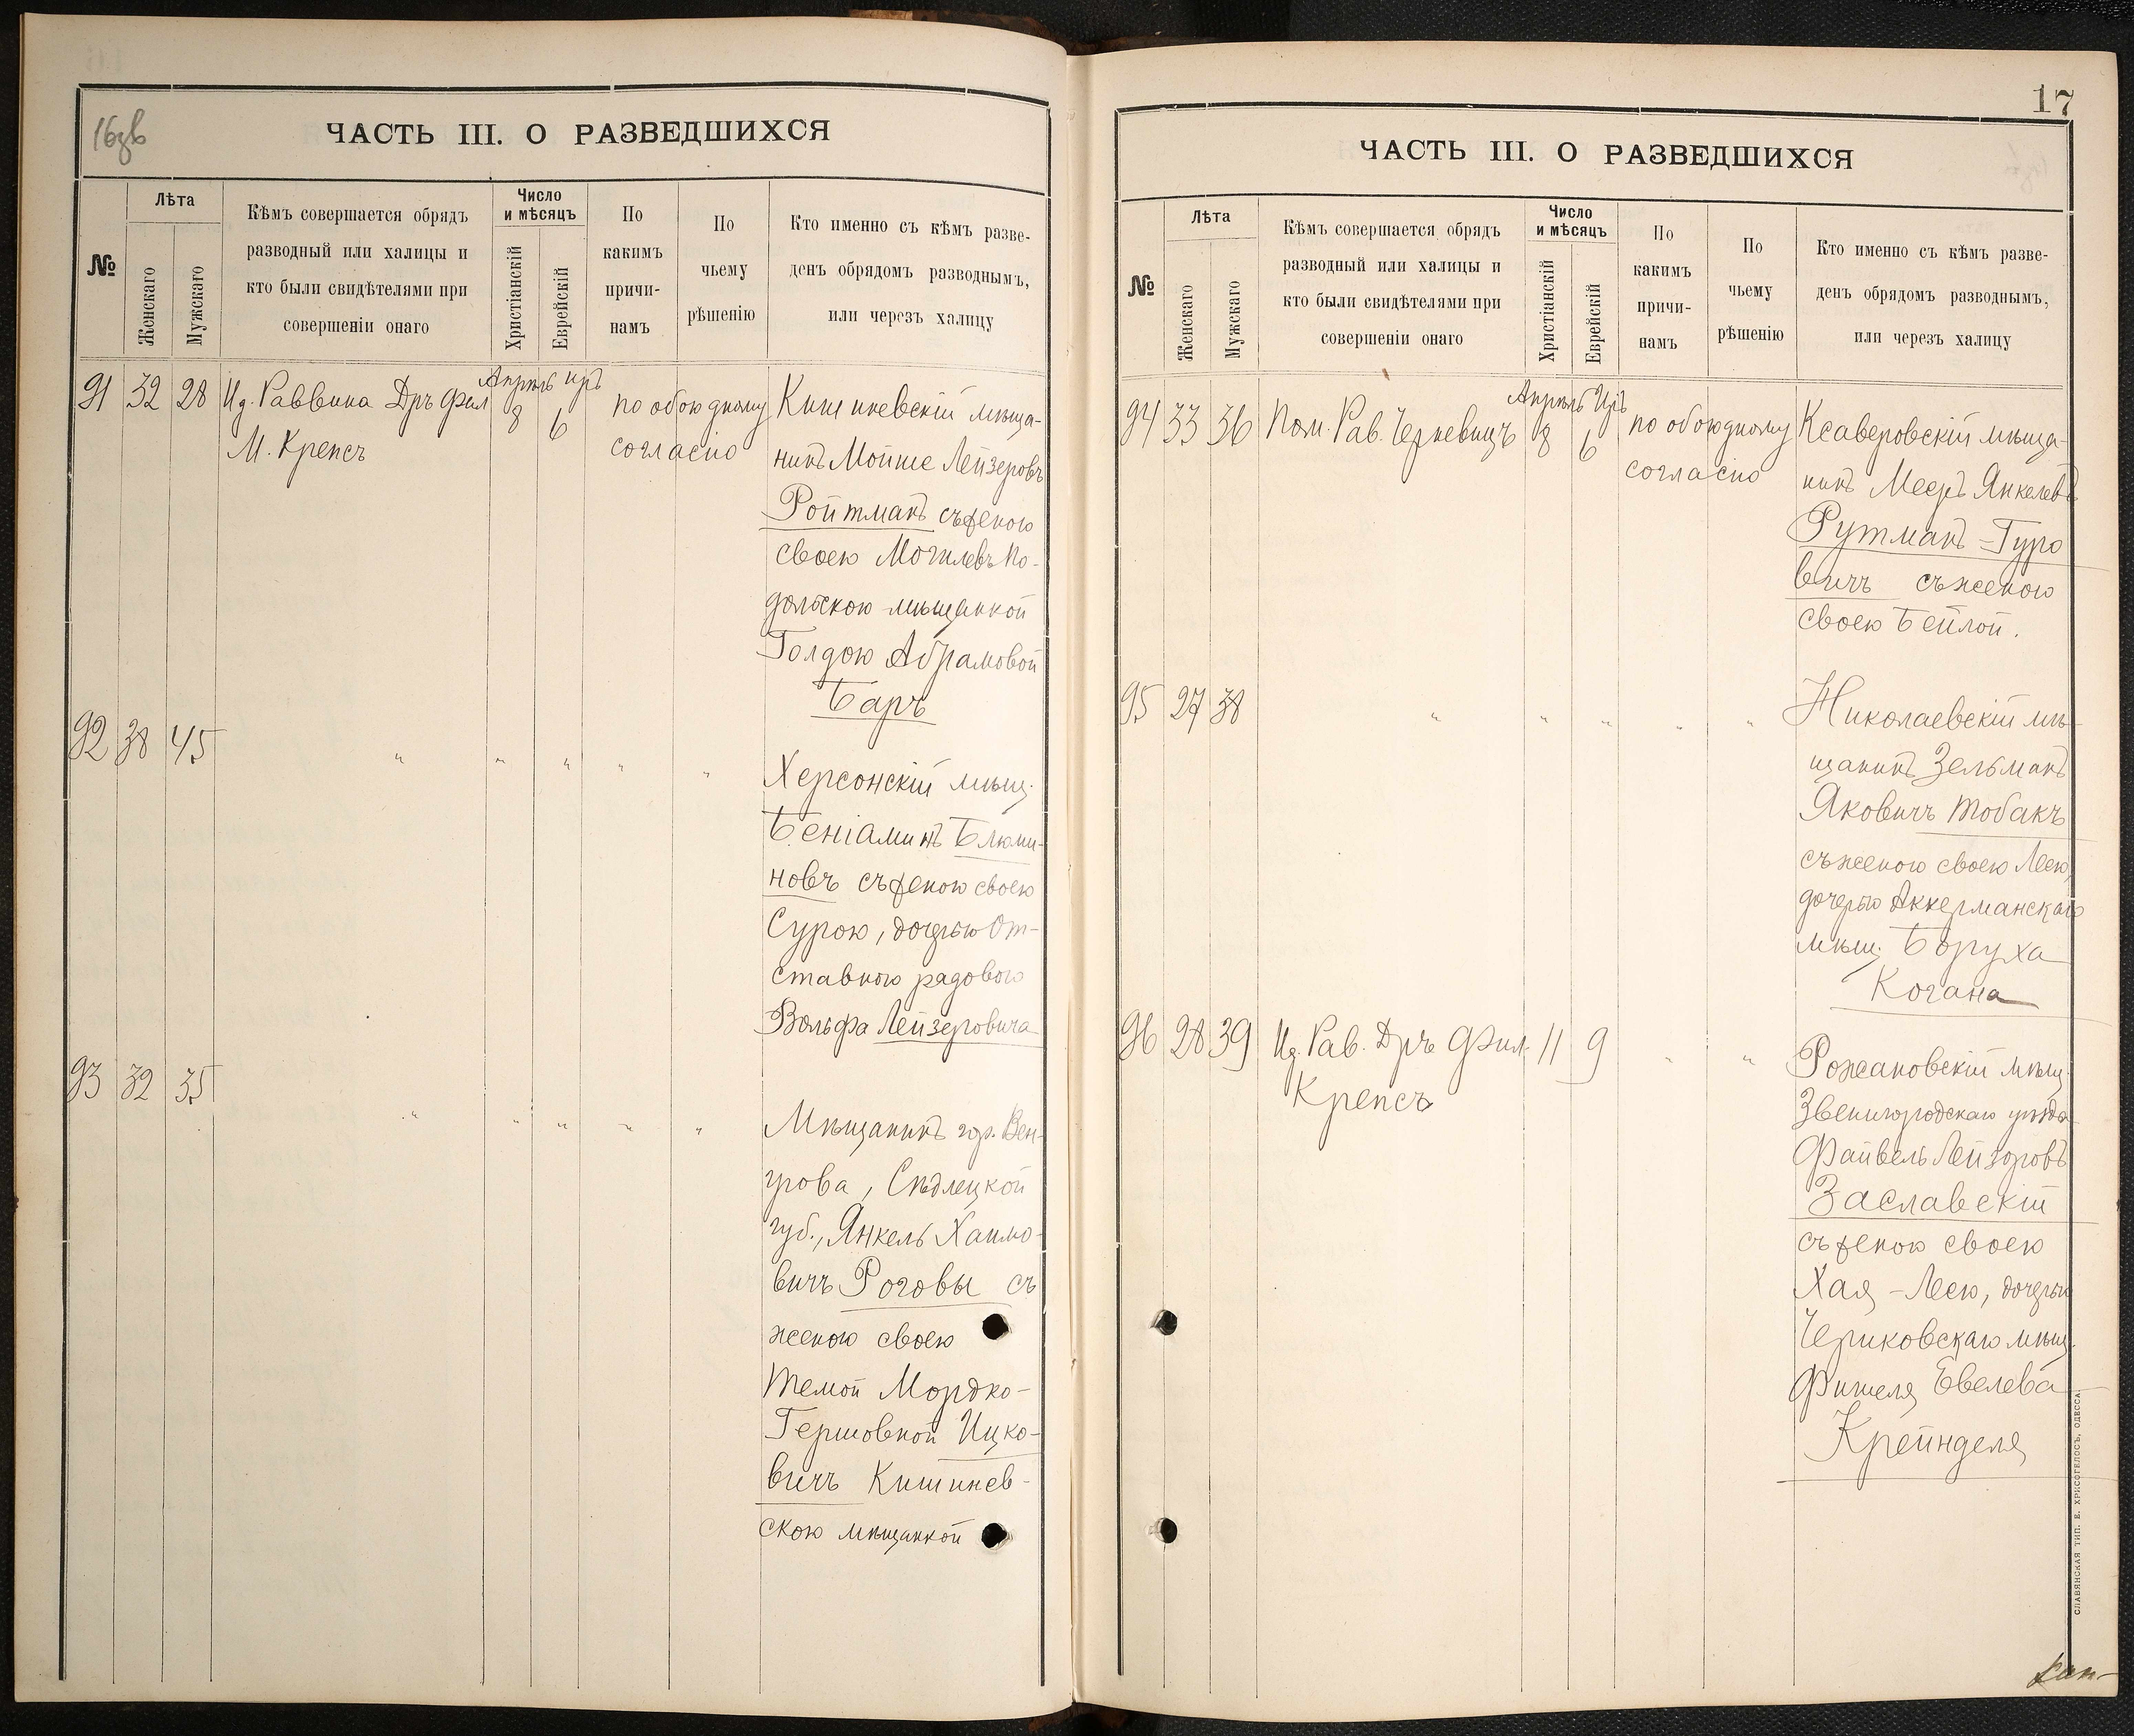 16об
ЧАСТЬ III. О РАЗВЕДШИХСЯ
№
Лѣта
Женскаго
Мужскаго
Кѣмъ совершается обрядъ
разводный или халицы и
кто были свидѣтелями при
совершеніи онаго
Число
и мѣсяцъ
Христіанскій
Еврейскій
По
какимъ
причи-
намъ
По
чьему
рѣшенію
Кто именно съ кѣмъ разве-
денъ обрядомъ разводнымъ,
или черезъ халицу
91 32 28 Ид. Раввина Дръ Фил
М. Крепсъ
Апрѣль Иръ
8 6
по обоюдному
согласію
Кишиневскій мѣща-
нинъ Мойше Лейзеровъ
Ройтманъ съ женою
своею Могилевъ По-
дольскою мѣщанкой
Голдою Абрамовой
Баръ
92 38 45 " " " " "
Херсонскій мѣщ.
Беніаминъ Блюми-
новъ съ женою своею
Сурою, дочерью От-
ставного рядового
Вольфа Лейзеровича
93 32 35 " " " " "
Мѣщанинъ гор. Вен-
грова, Сѣдлецкой
губ., Янкель Хаимо-
вичъ Роговы съ
женою своею
Темой Мордко-
Гершовной Ицко-
вичъ Кишинев-
скою мѣщанкой
17
ЧАСТЬ III. О РАЗВЕДШИХСЯ
№
Лѣта
Женскаго
Мужскаго
Кѣмъ совершается обрядъ
разводный или халицы и
кто были свидѣтелями при
совершеніи онаго
Число
и мѣсяцъ
Христіанскій
Еврейскій
По
какимъ
причи-
намъ
По
чьему
рѣшенію
Кто именно съ кѣмъ разве-
денъ обрядомъ разводнымъ,
или черезъ халицу
94 33 36 Пом. Рав. Черневицъ
Апрѣль Иръ
8 6
по обоюдному
согласію
Ксаверовскій мѣща-
нинъ Мееръ Янкелевъ
Рутманъ-Гуро
вичъ съ женою
своею Бейлой.
95 27 38 " " " " "
Николаевскій мѣ-
щанинъ Зельманъ
Яковичъ Тобакъ
съ женою своею Леею,
дочерью Аккерманскаго
мѣщ. Боруха
Когана
96 28 39 Ид. Рав. Дръ Фил. 11 9 " "
Крепсъ
Рожановскій мѣщ.
Звенигородскаго уѣзда
Файвель Лейзоровъ
Заславскій
съ женою своею
Хая-Леею, дочерью
Чериковскаго мѣщ.
Фишеля Евелева
Крейнделя
СЛАВЯНСКАЯ ТИП. Е. ХРИСОГЕЛОСЪ, ОДЕССА.